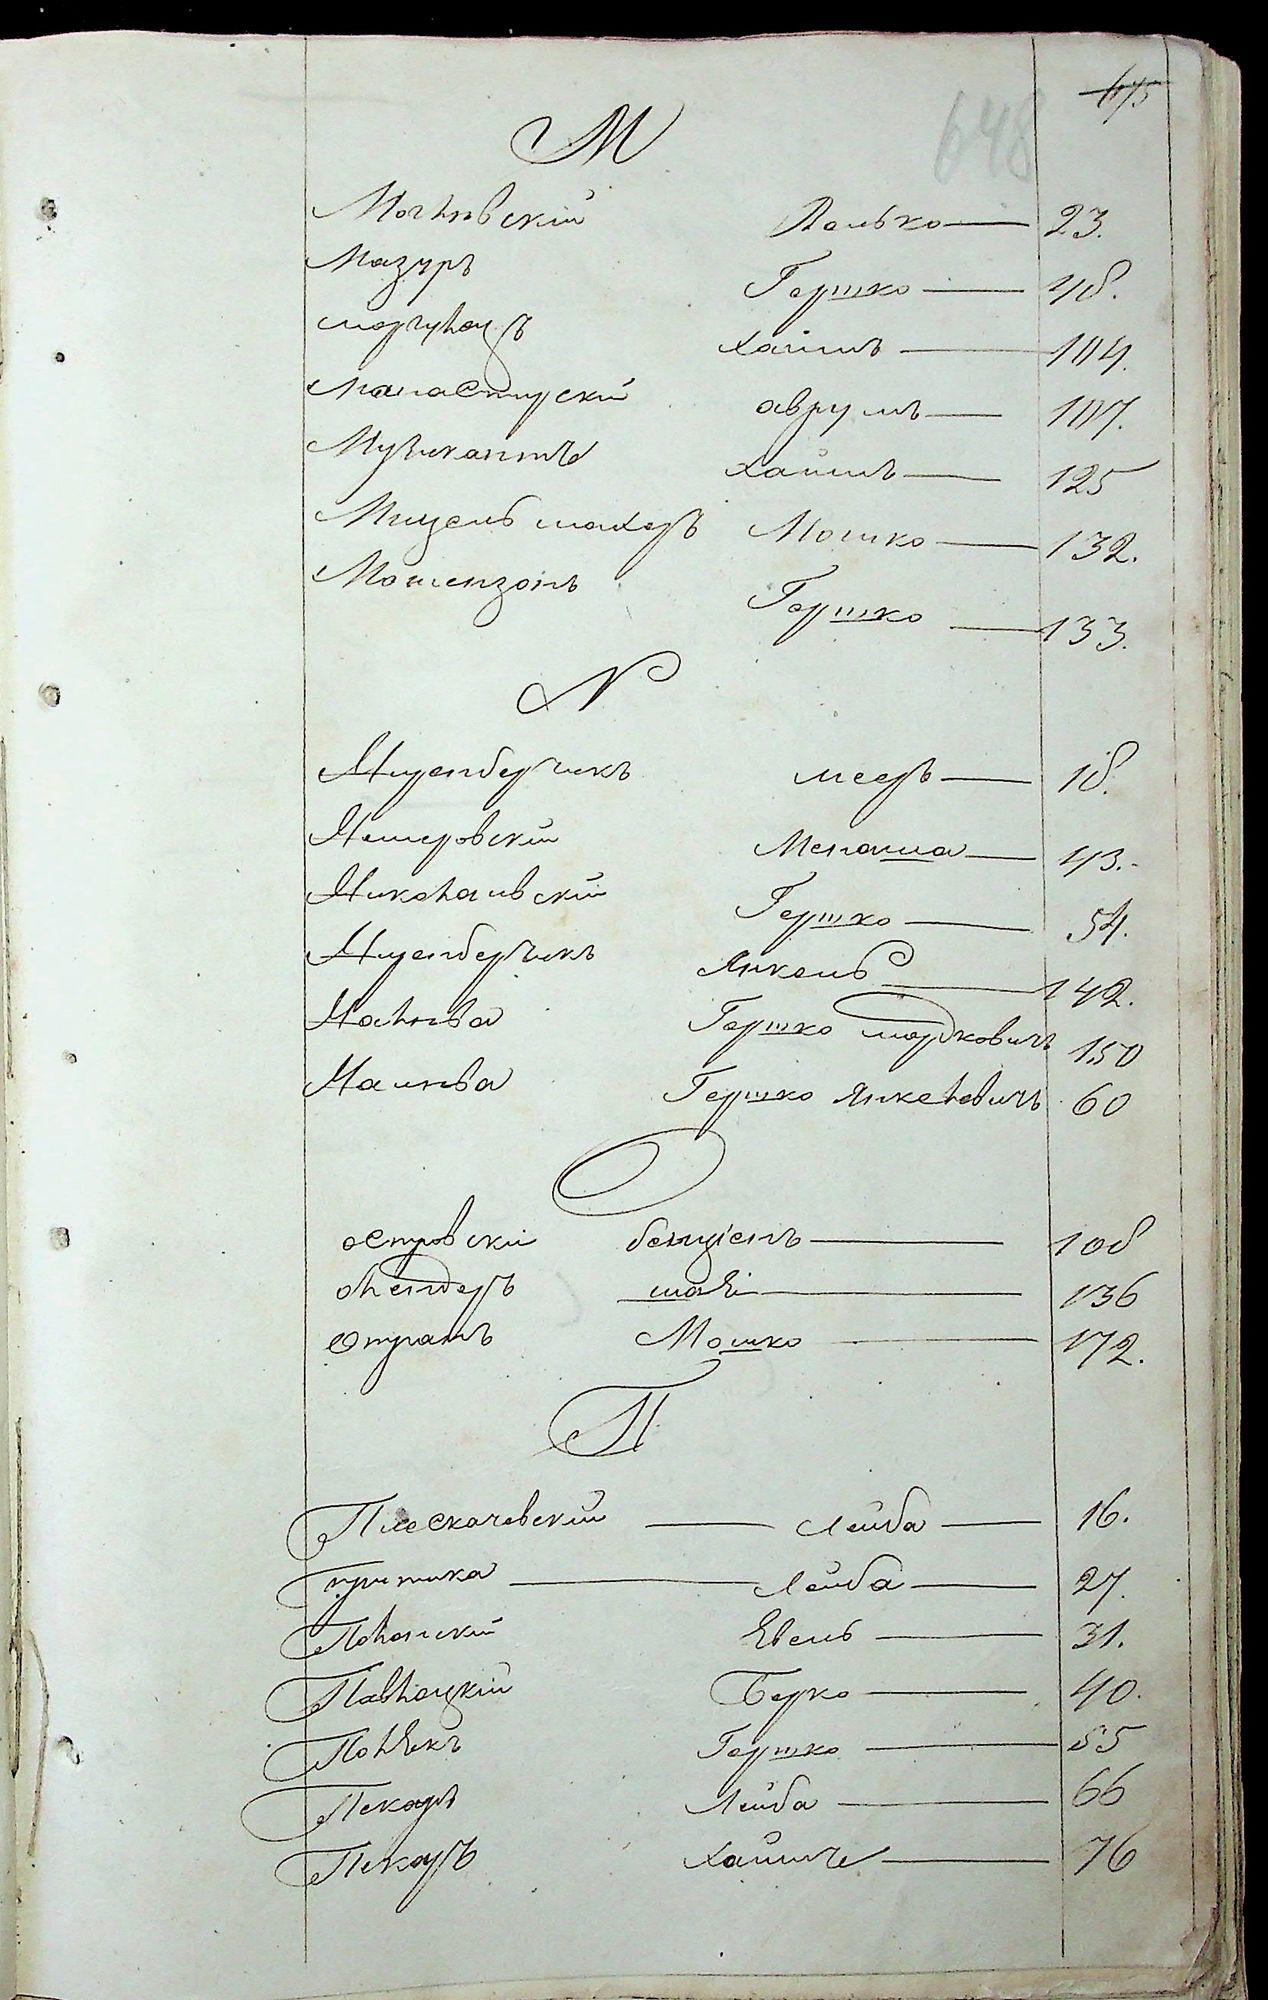 675
648
М
Могилевскій Волько — 23.
Мазуръ Гершко — 48.
Маргулацъ Хаимъ — 104.
Манастирскій аврумъ — 107.
Музыкантъ Хаимъ — 125
Мицельмахеръ Мошко — 132.
Мошензонъ Гершко — 133.
N
Ниренбергикъ мееръ — 18.
Немеровскій Менаша — 43.
Николаивскій Гершко — 54.
Ниренбергикъ Янкель — 142.
Наливва Гершко мордковичъ 150
Наливва Гершко янкелевичъ 60
О
островскій бенціенъ — 108
олендеръ шаѣ — 136
Мошко — 172.
П
Плескачевскій — Лейба — 16.
притика — Лейба — 27.
Полонскій Евель — 31.
Павлоцкій Берко — 40.
Полѣкъ Гершко — 55
Пекаръ Лейба — 66
Пекаръ Хаимъ — 76